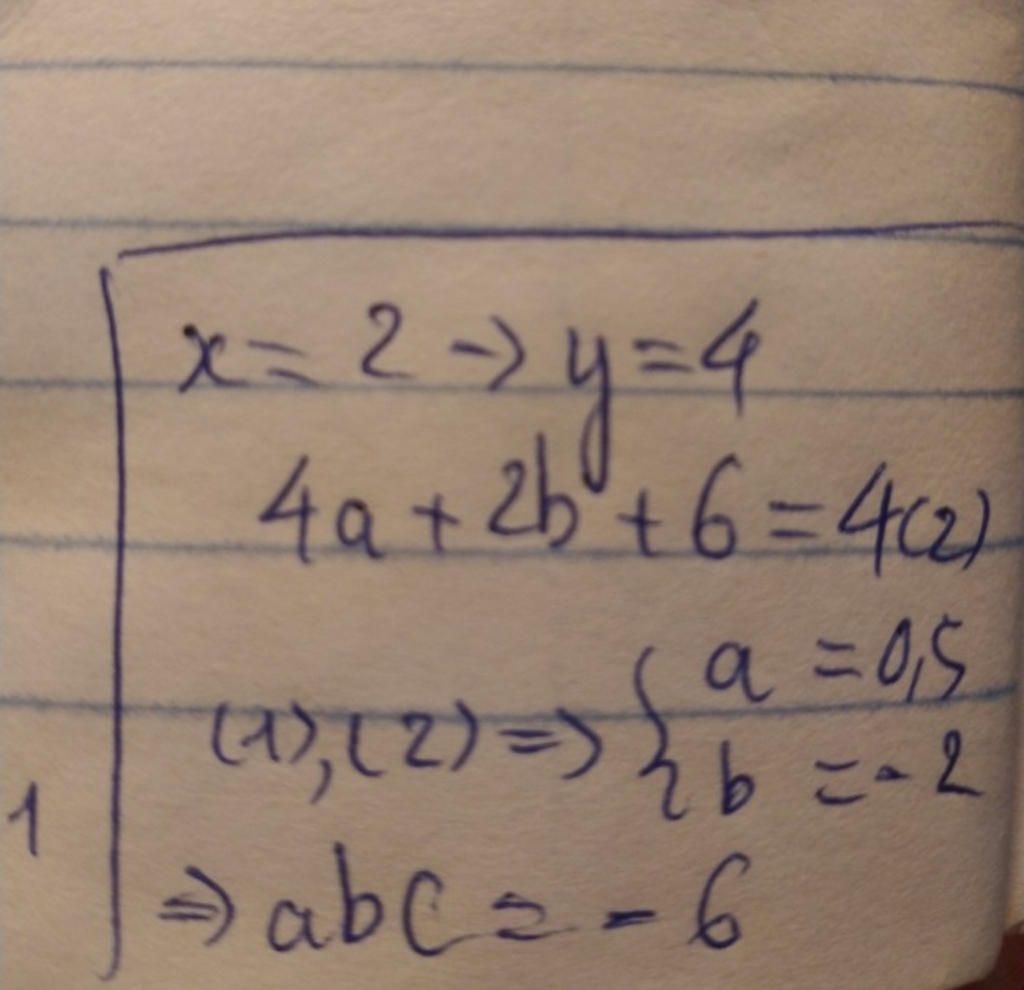 x = 2 → y = 4
4a + 2b + 6 = 4 (2)
(1), (2) ⇒ { a = 0,5
b = - 2
1
⇒ abc = - 6